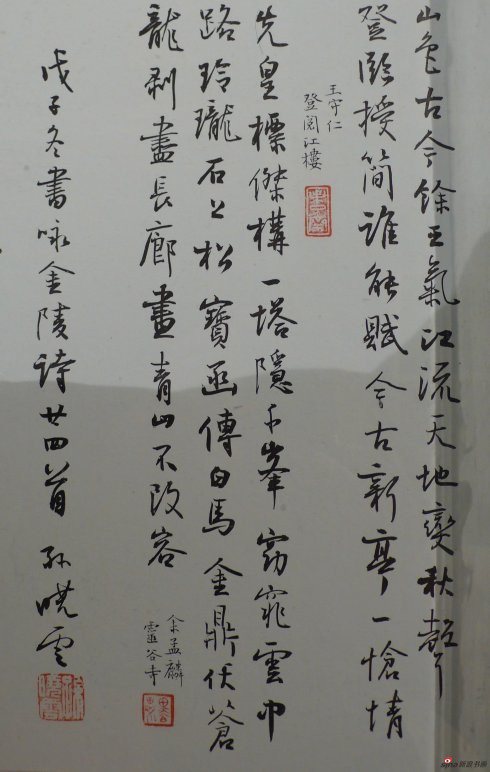 山色古今餘王氣江流天地變秋聲
登臨授簡誰能賦今古新亭一愴情
王守仁
登閱江樓
先皇標傑構一塔隱千峯窈窕雲中
路玲瓏石上松寶函傳白馬金鼎伏蒼
龍剥盡長廊畫青山不改容
余孟麟
靈谷寺
戊子冬書咏金陵诗廿四首 孫曉雲